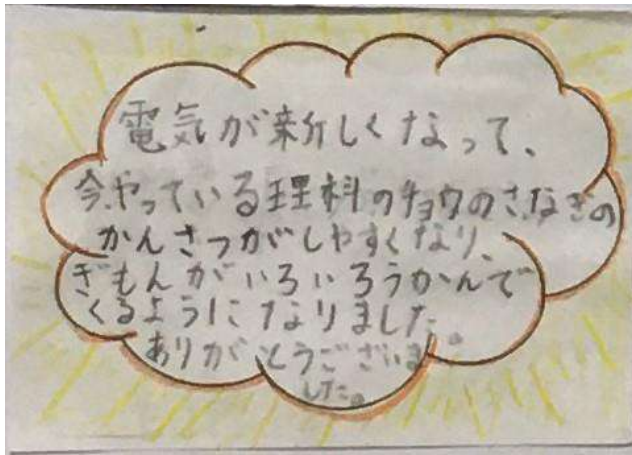 電気が新しくなって、
今、やっている理科のチョウのさなぎの
かんさつがしやすくなり、
ぎもんがいろいろうかんで
くるようになりました。
ありがとうございま
した。